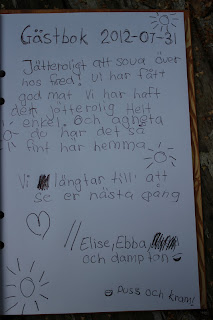 Gästbok 2012-07-31
Jätteroligt att sova över
hos fæd! Vi har fått
god mat Vi har haft
det Jätterolig Helt
enkel. Och agneta
du har det så
fint här hemma
Vi längtar till att
se er nästa gång
//Elise, Ebba
och damptan
Puss och kram!